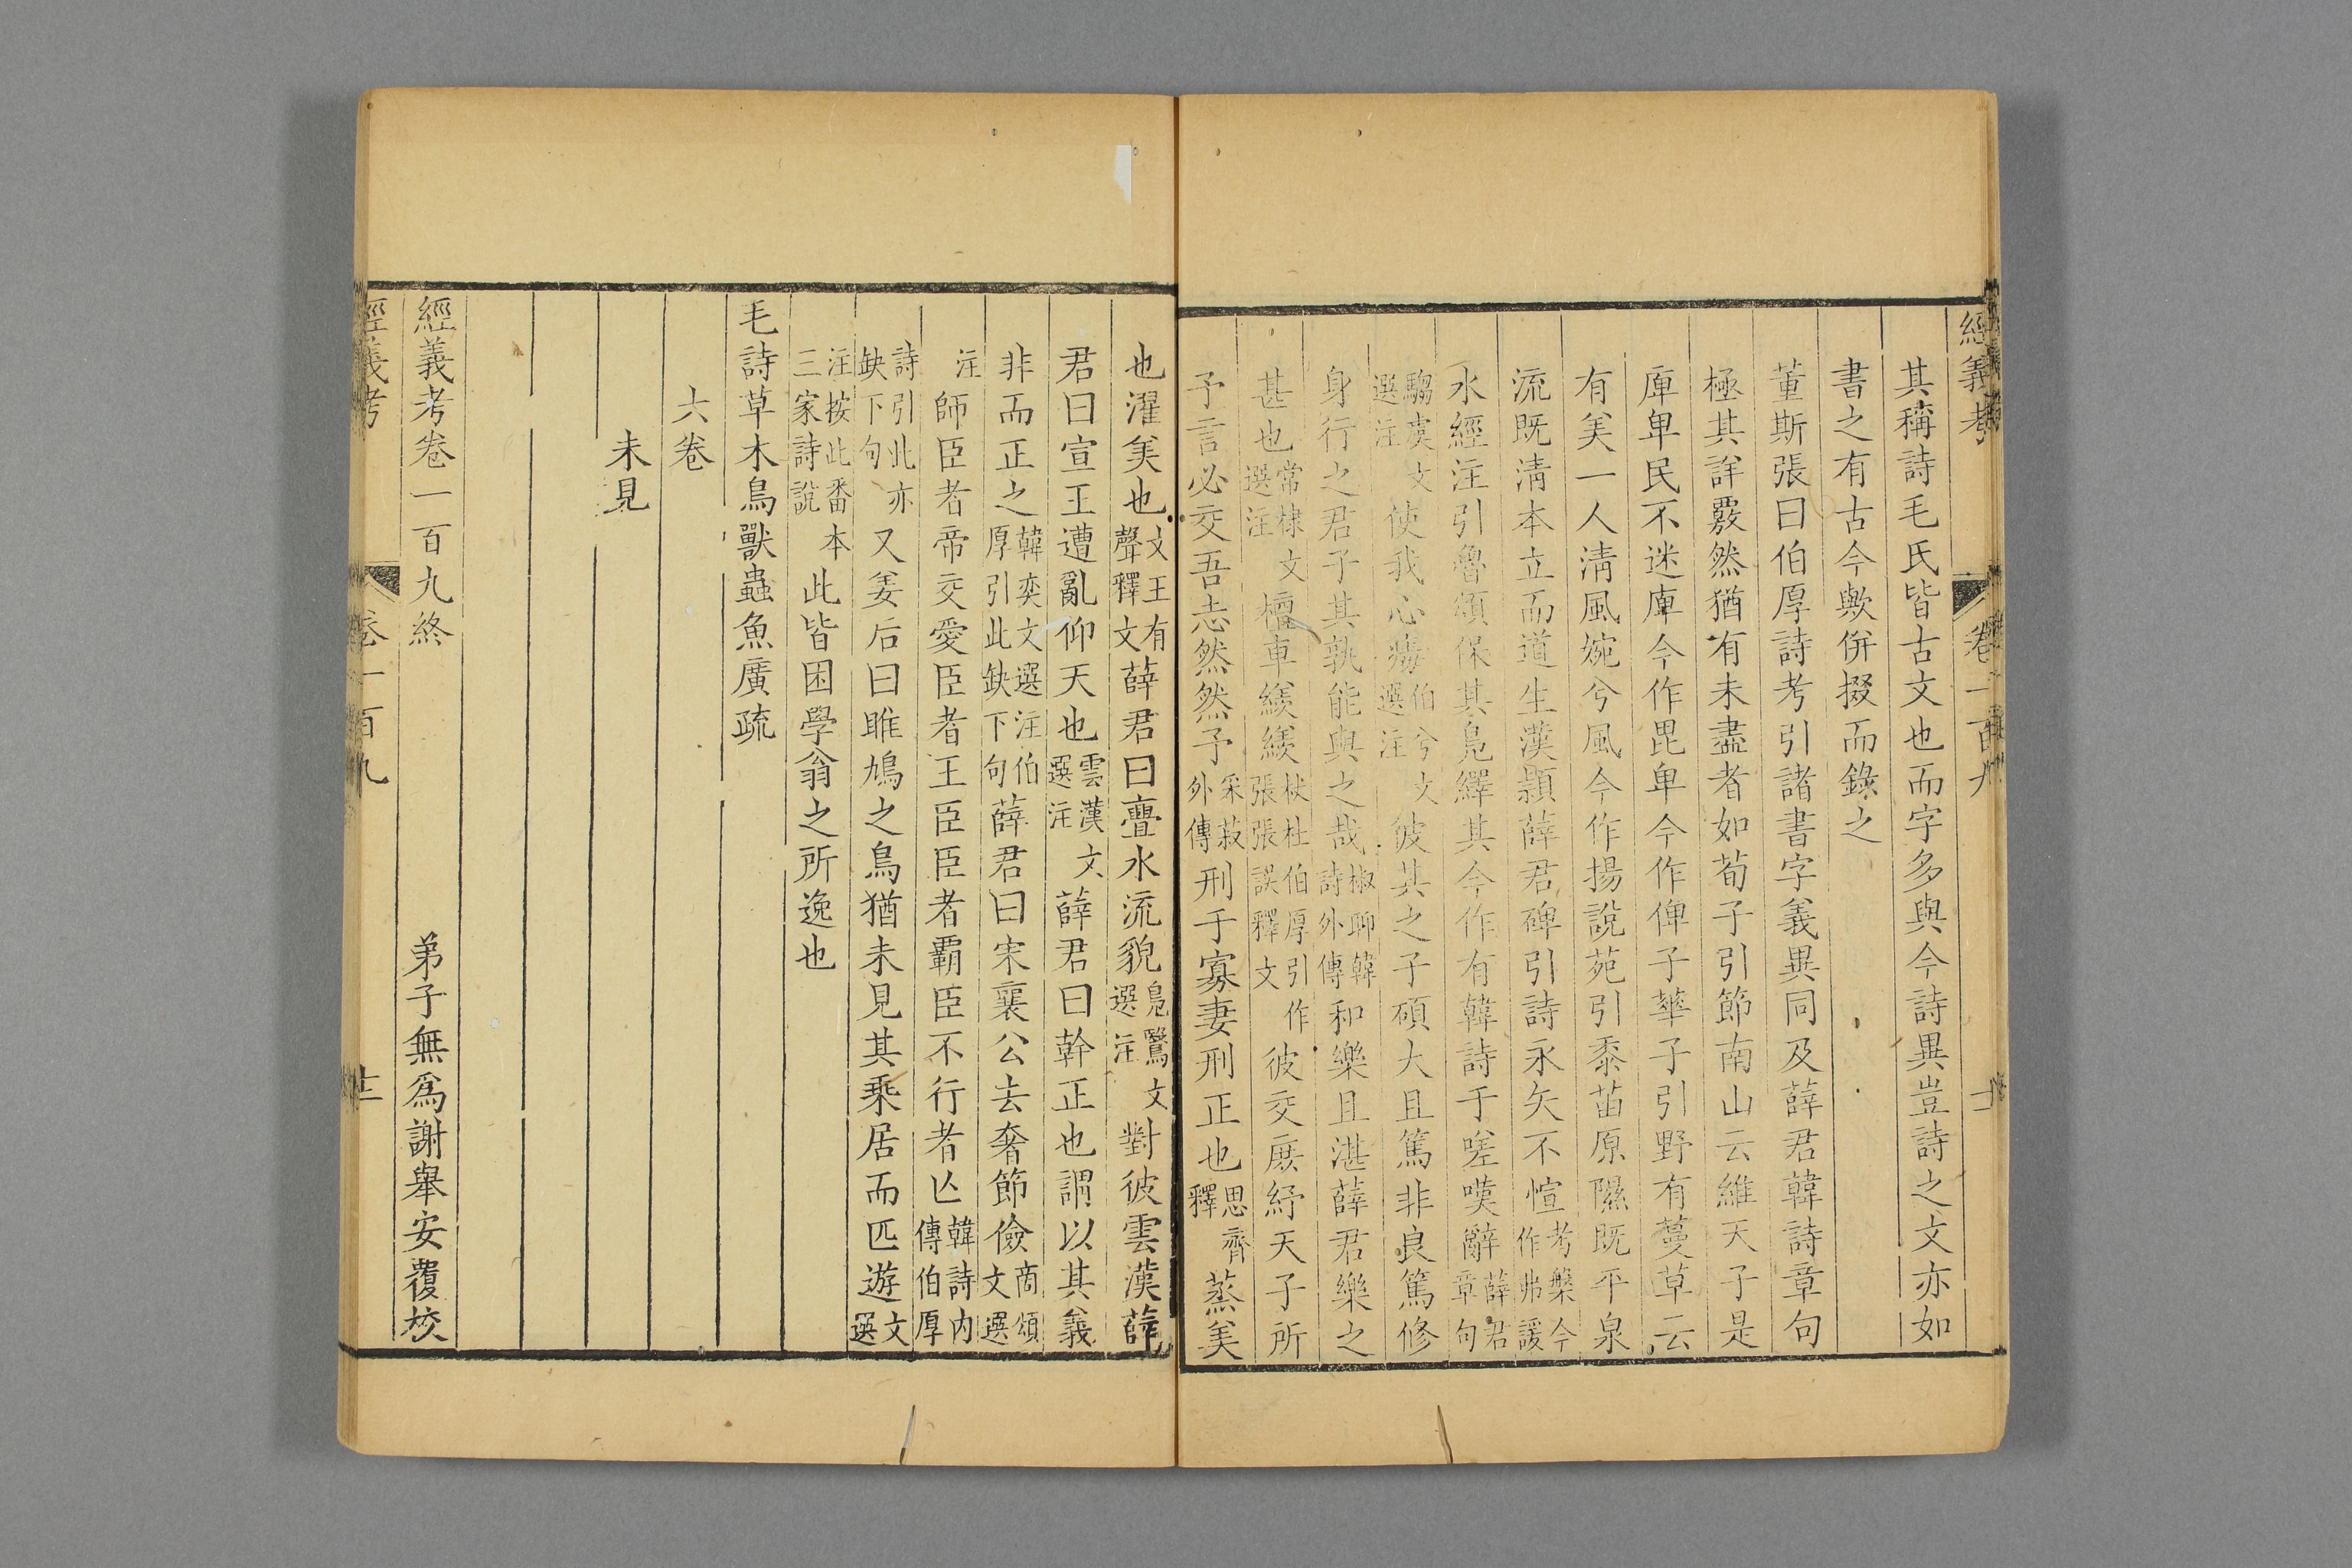 經義考
卷一百九
十
其稱詩毛氏皆古文也而字多與今詩異豈詩之文亦如
書之有古今歟併掇而錄之
董斯張曰伯厚詩考引諸書字義異同及薛君韓詩章句
極其詳覈然猶有未盡者如荀子引節南山云維天子是
庳卑民不迷庳今作毘卑今作俾子華子引野有蔓草云
有美一人清風婉兮風今作揚說苑引黍苗原隰既平泉
流既清本立而道生漢顥薛君碑引詩永矢不愃考槃今作弗諼
水經注引魯頌保其鳧繹其今作有韓詩于嗟嘆辭薛君章句
騶虞文選注使我心痗伯兮文選注彼其之子碩大且篤非良篤修
身行之君子其孰能與之哉椒聊韓詩外傳和樂且湛薛君樂之
甚也常棣文選注檀車緩緩杕杜伯厚引作張張誤釋文彼交庶紓天子所
予言必交吾志然然予采菽外傳刑于寡妻刑正也思齊釋蒸美
也濯美也文王有聲釋文薛君曰亹水流貌鳧鷖文選注對彼雲漢薛
君曰宣王遭亂仰天也雲漢文選注薛君曰幹正也謂以其義
非而正之韓奕文選注伯厚引此缺下句薛君曰宋襄公去奢節儉商頌文選
注師臣者帝交愛臣者王臣臣者霸臣不行者亾韓詩內傳伯厚
詩引此亦缺下句又姜后曰雎鳩之鳥猶未見其乘居而匹遊文選
注按此番本三家詩說此皆困學翁之所逸也
毛詩草木鳥獸蟲魚廣疏
六卷
未見
經義考卷一百九終
弟子無爲謝舉安覆校
經義考
卷一百九